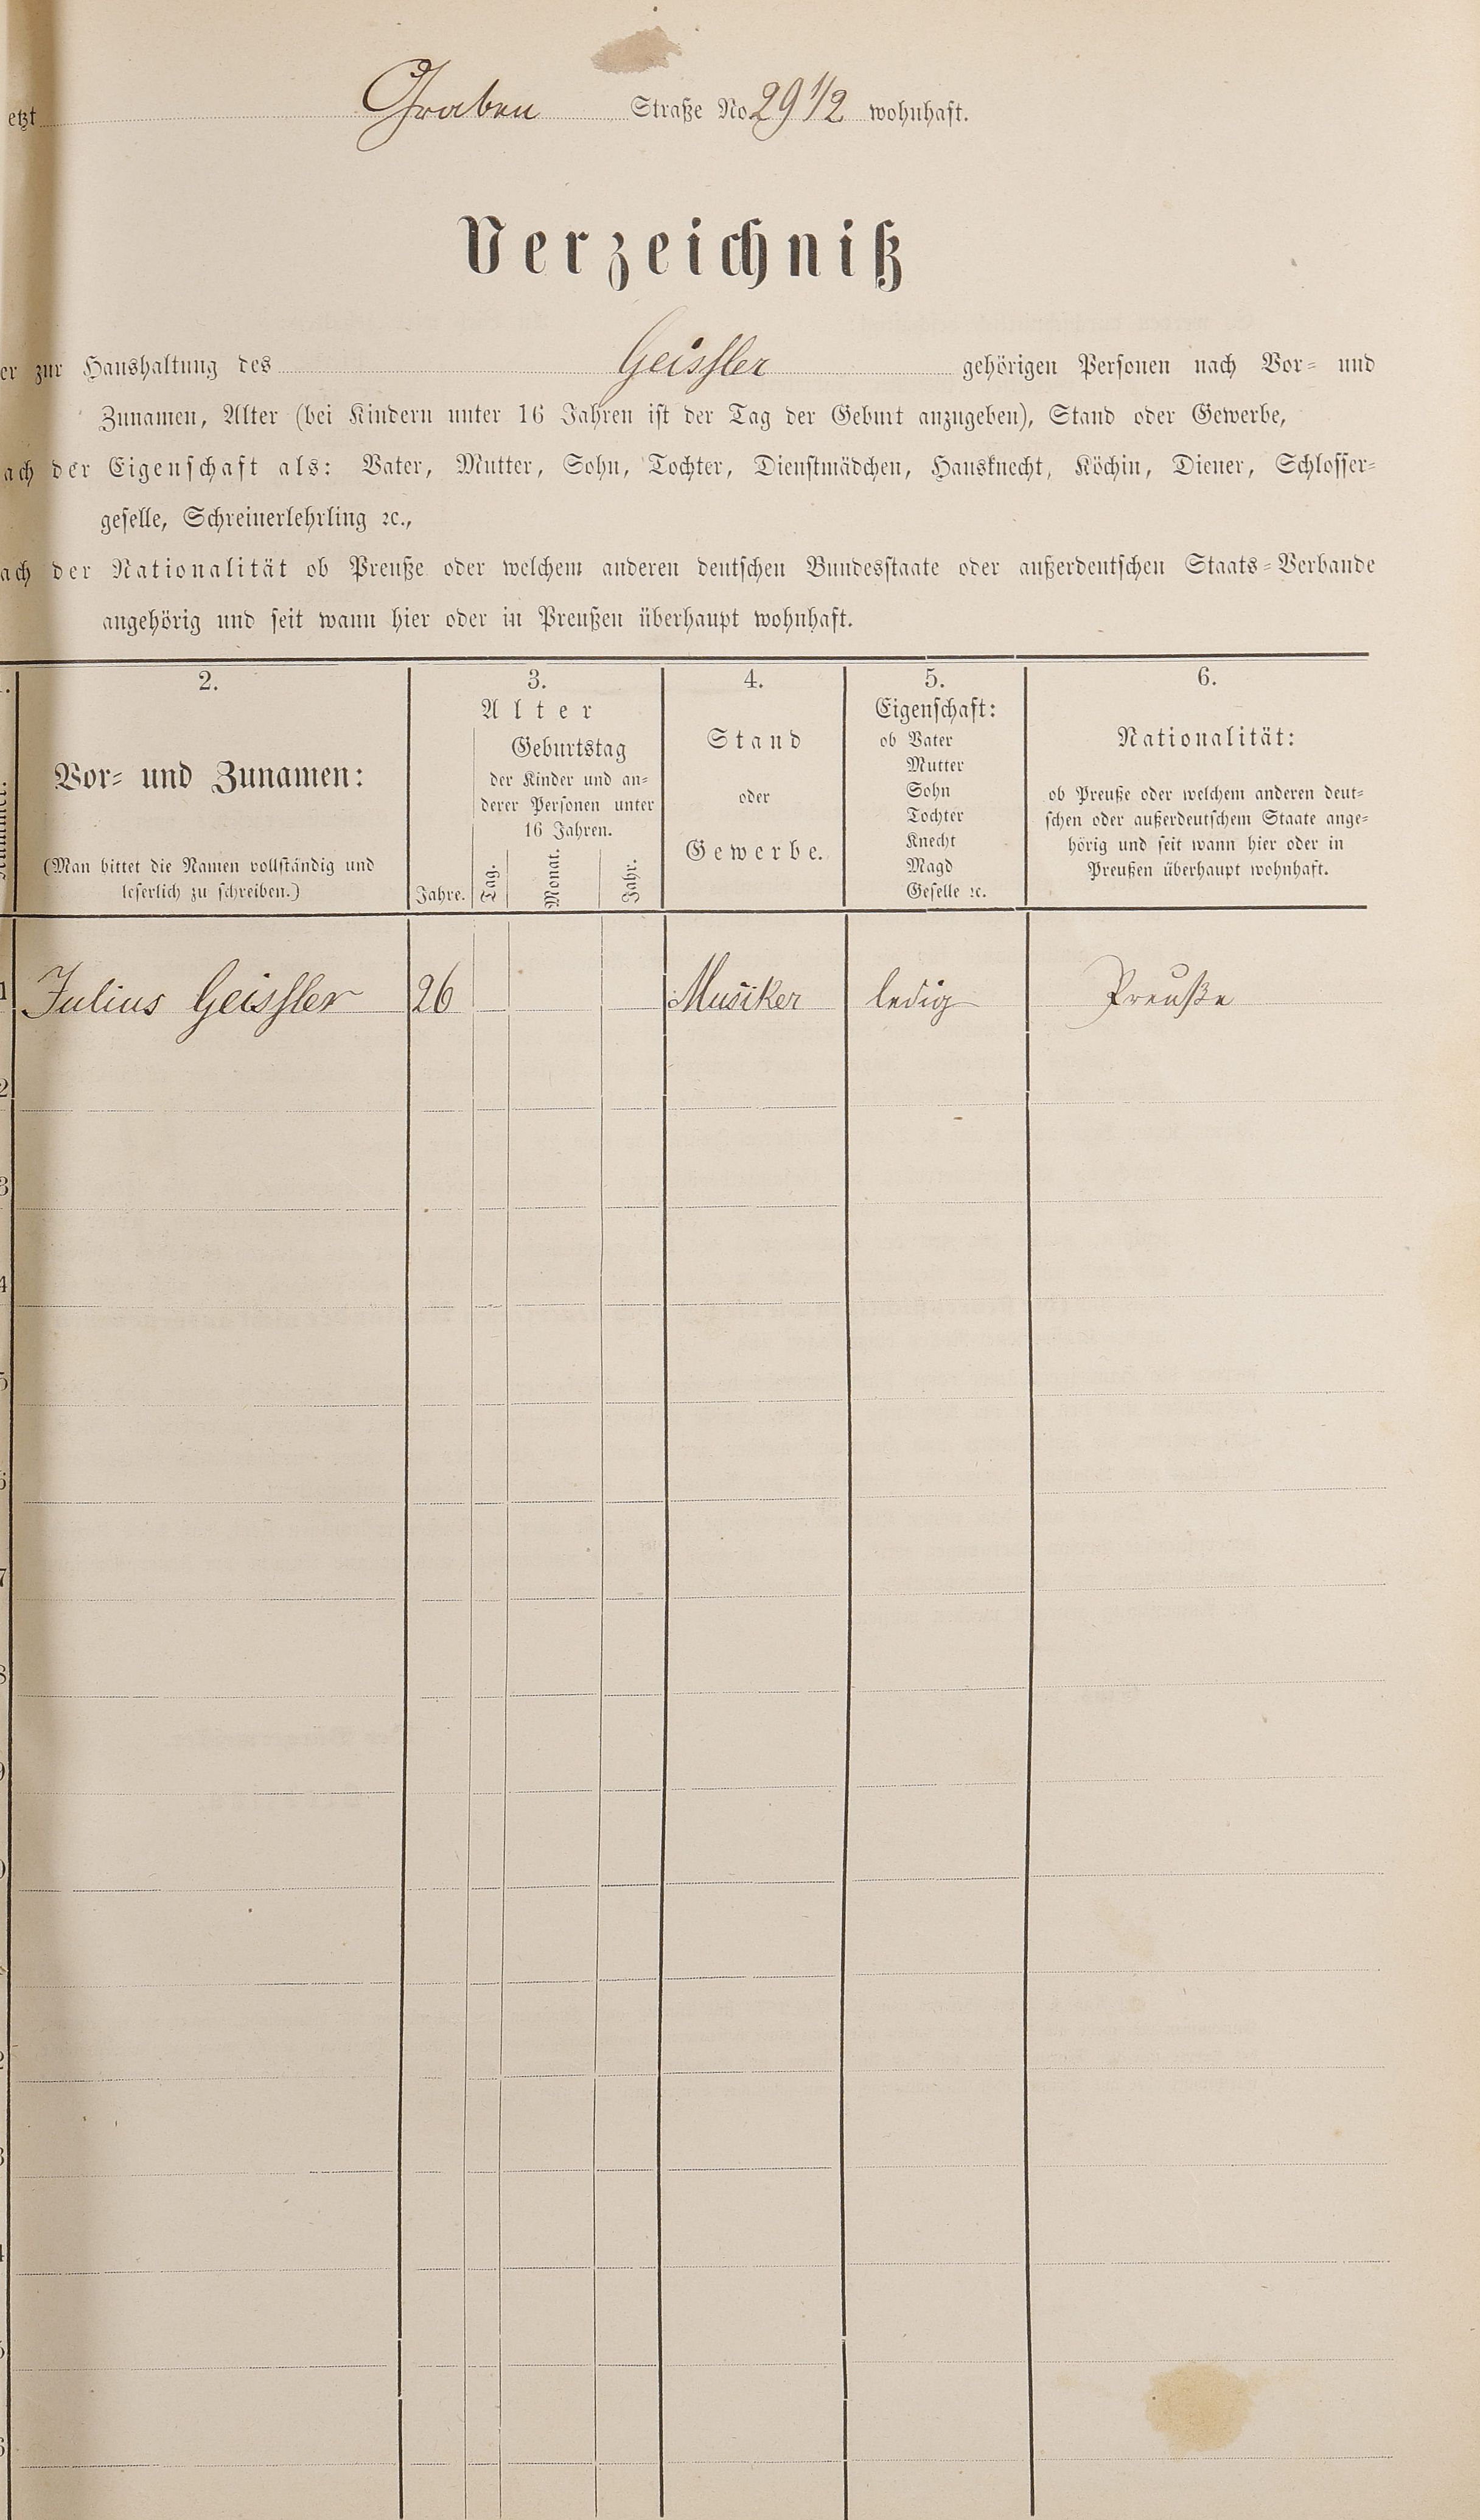 etzt Graben Straße No. 29 1/2 wohnhaft.
Verzeichniß
er zur Haushaltung des Geissler gehörigen Personen nach Vor- und
Zunamen, Alter (bei Kindern unter 16 Jahren ist der Tag der Geburt anzugeben), Stand oder Gewerbe,
ach der Eigenschaft als: Vater, Mutter, Sohn, Tochter, Dienstmädchen, Hausknecht, Köchin, Diener, Schlosser-
geselle, Schreinerlehrling ꝛc.,
ach der Nationalität ob Preuße oder welchem anderen deutschen Bundesstaate oder außerdeutschen Staats-Verbande
angehörig und seit wann hier oder in Preußen überhaupt wohnhaft.
2.
Vor- und Zunamen:
(Man bittet die Namen vollständig und
leserlich zu schreiben.)
3.
Alter
Geburtstag
der Kinder und an-
derer Personen unter
16 Jahren.
Jahre. Tag. Monat. Jahr.
4.
Stand
oder
Gewerbe.
5.
Eigenschaft:
ob Vater
Mutter
Sohn
Tochter
Knecht
Magd
Geselle ꝛc.
6.
Nationalität:
ob Preuße oder welchem anderen deut-
schen oder außerdeutschem Staate ange-
hörig und seit wann hier oder in
Preußen überhaupt wohnhaft.
1 Julius Geissler 26 Musiker ledig Preuße
2
3
4
5
6
7
8
9
0
2
3
4
5
6